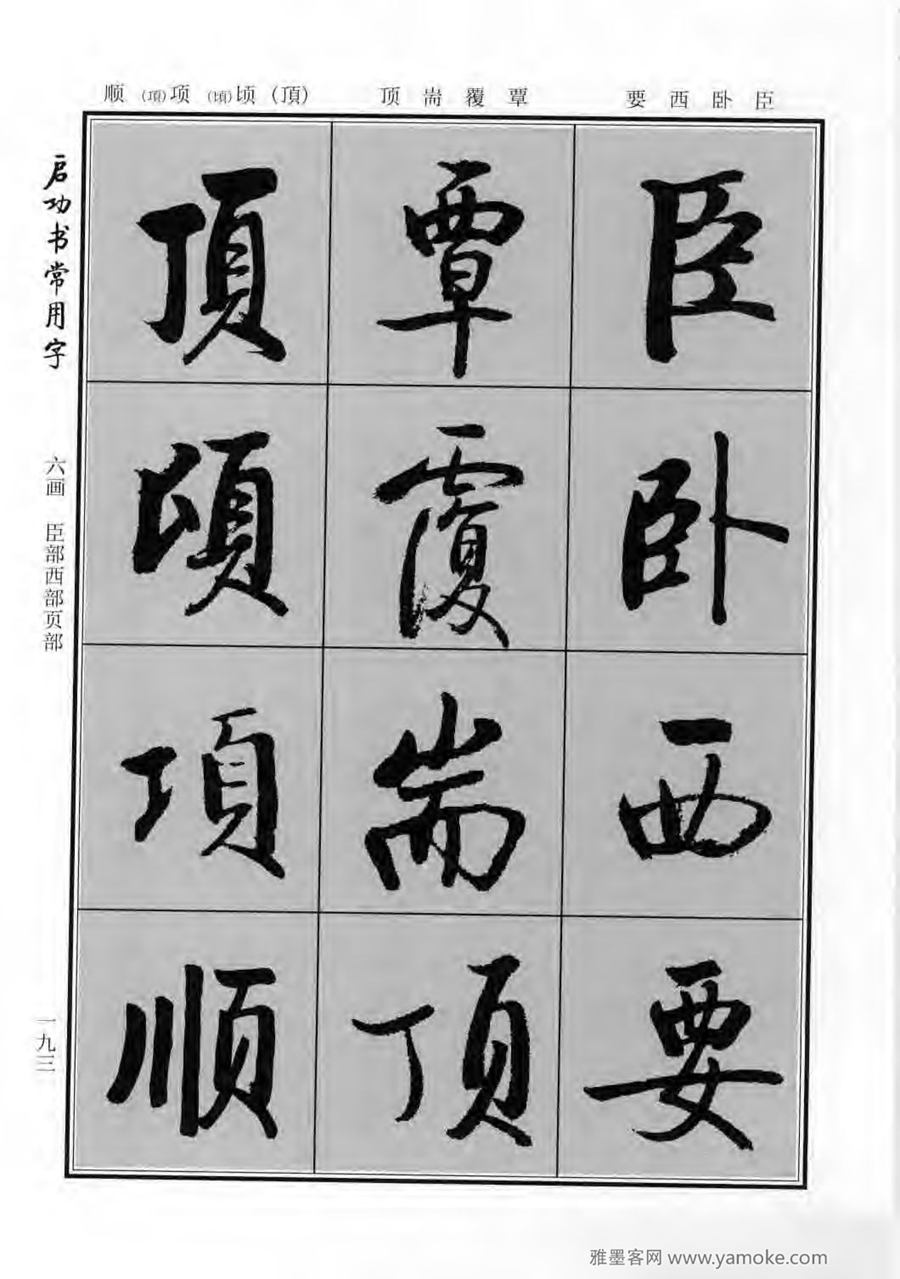 臣卧西要
覃覆耑顶
(頂)顷(頃)项(項)顺
臣
卧
西
要
覃
覆
耑
顶
頂
頃
項
顺
启功书常用字
六画 臣部西部页部
一九三
雅墨客网 www.yamoke.com